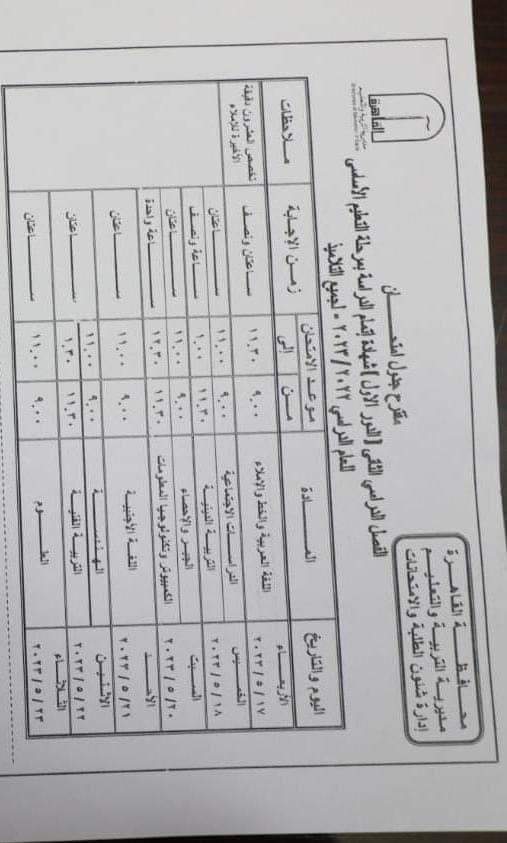 محافظة القاهرة
مديرية التربية والتعليم
إدارة شئون الطلبة والامتحانات
القاهرة
مديرية التربية والتعليم
مقترح جدول امتحان
الفصل الدراسي الثاني (الدور الأول) شهادة إتمام الدراسة بمرحلة التعليم الأساسي
للعام الدراسي ٢٠٢٣/٢٠٢٢ - لجميع التلاميذ
اليوم والتاريخ المادة موعد الامتحان زمن الإجابة ملاحظات
من إلى
الأربعاء ٢٠٢٣/٥/١٧ اللغة العربية والخط والإملاء ٩.٠٠ ١١.٣٠ ساعتان ونصف تخصص العشرون دقيقة الأخيرة للإملاء
الخميس ٢٠٢٣/٥/١٨ الدراسات الاجتماعية ٩.٠٠ ١١.٠٠ ساعتان
التربية الدينية ١١.٣٠ ١.٠٠ ساعة ونصف
السبت ٢٠٢٣/٥/٢٠ الجبر والإحصاء ٩.٠٠ ١١.٠٠ ساعتان
الكمبيوتر وتكنولوجيا المعلومات ١١.٣٠ ١٢.٣٠ ساعة واحدة
الأحد ٢٠٢٣/٥/٢١ اللغة الأجنبية ٩.٠٠ ١١.٠٠ ساعتان
الاثنين ٢٠٢٣/٥/٢٢ الهندسة ٩.٠٠ ١١.٠٠ ساعتان
التربية الفنية ١١.٣٠ ١.٣٠
الثلاثاء ٢٠٢٣/٥/٢٣ العلوم ٩.٠٠ ١١.٠٠ ساعتان